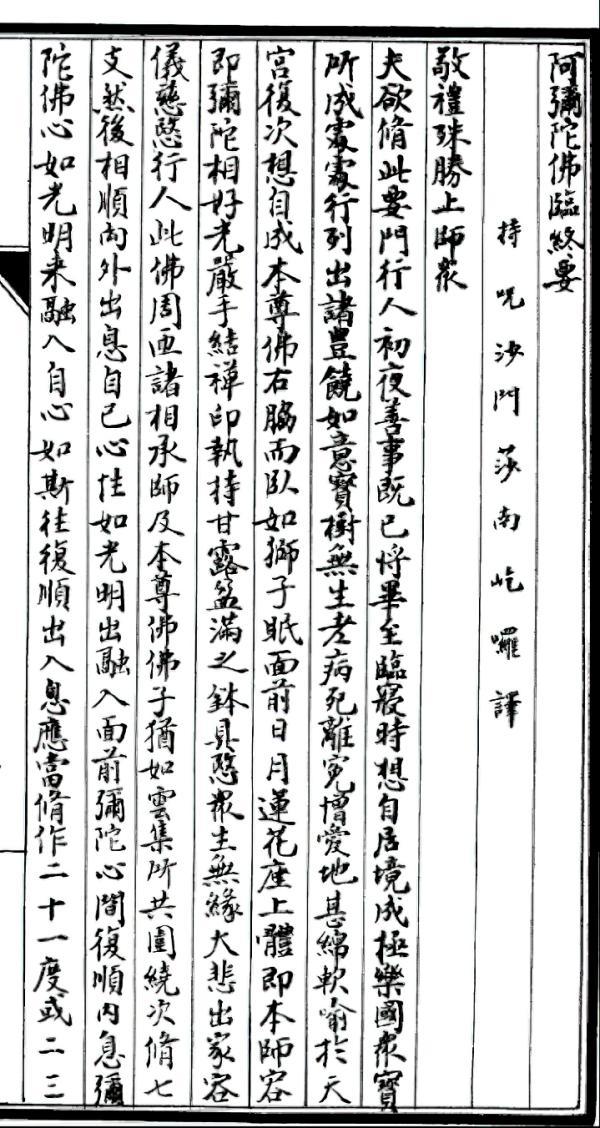 阿彌陀佛臨終要
持呪沙門莎南屹囉譯
敬禮殊勝上師衆
夫欲脩此要門行人初夜善事既已將畢至臨寢時想自居境成極樂國衆寶
所成處處行列出諸豊饒如意寶樹無生老病死離寃憎愛地甚綿軟喻扵天
宮復次想自成本尊佛右脇而臥如獅子眠面前日月蓮花座上體即本師容
即彌陀相好光嚴手結禪印執持甘露盈滿之鉢具愍衆生無緣大悲出家容
儀慈愍行人此佛周匝諸相承師及本尊佛佛子猶如雲集所共圍繞次脩七
支然後相順向外出息自己心性如光明出融入面前彌陀心間復順内息彌
陀佛心如光明来融入自心如斯往復順出入息應當脩作二十一度或二三